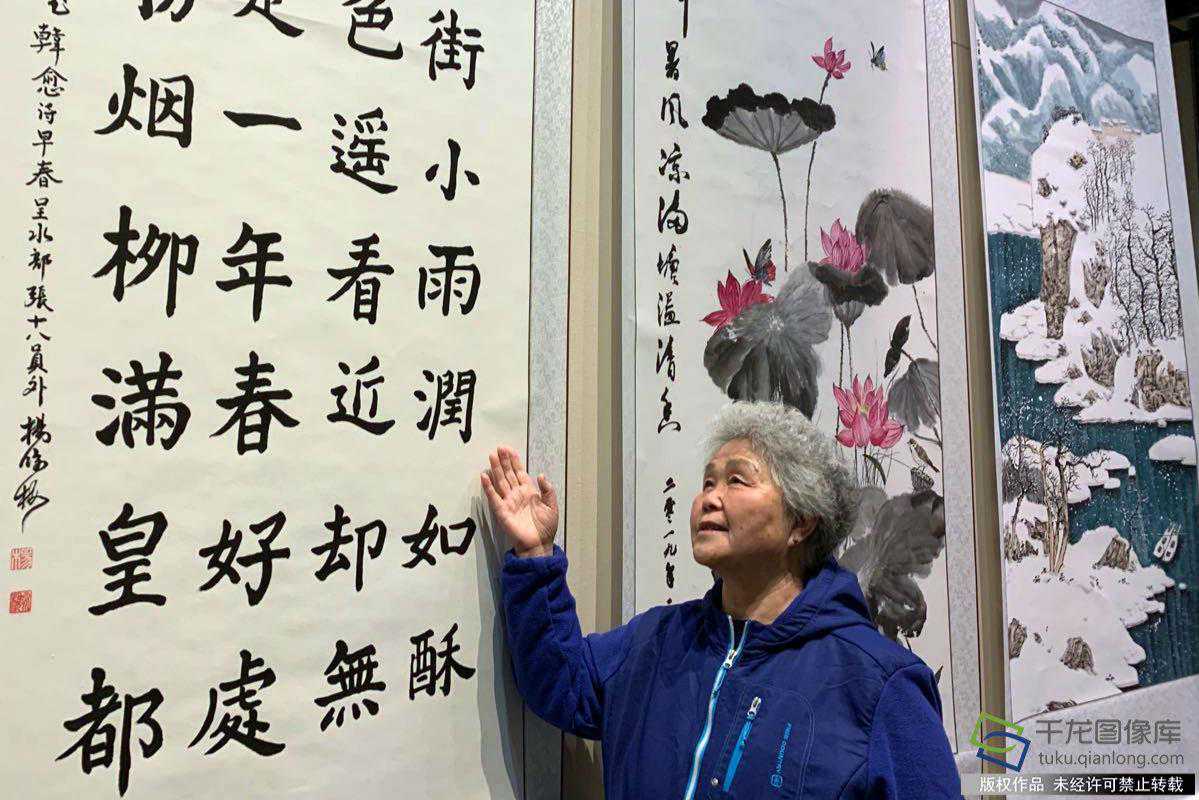 街小雨潤如酥
色遥看近却無
是一年春好處
烟柳滿皇都
韓愈诗早春呈水部張十八員外 楊
暑风凉满塘溢清香 二零一九年
千龙图像库
tuku.qianlong.com
版权作品 未经许可禁止转载